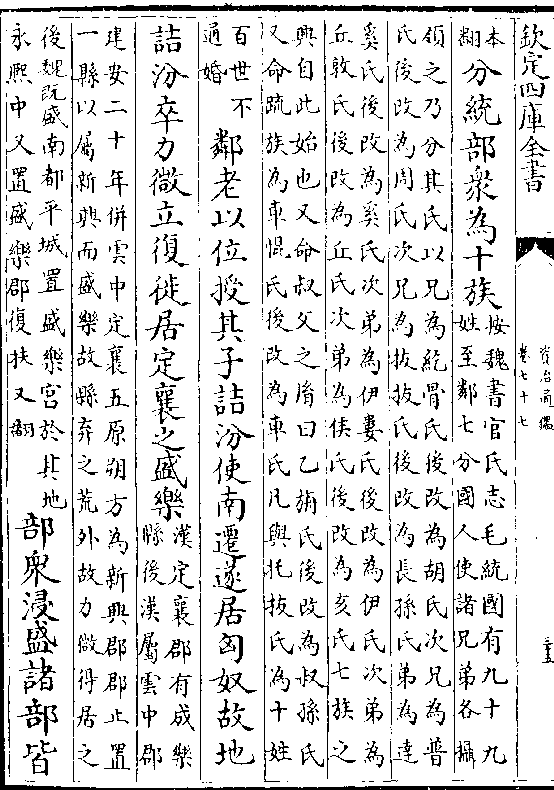 欽定四庫全書
資治通鑑
卷七十七
本
翻
分統部衆為十族
按魏書官氏志毛統國有九十九
姓至鄰七分國人使諸兄弟各攝
領之乃分其氏以兄為紇骨氏後改為胡氏次兄為普
氏後改為周氏次兄為拔拔氏後改為長孫氏弟為達
奚氏後改為奚氏次弟為伊婁氏後改為伊氏次弟為
丘敦氏後改為丘氏次弟為俟氏後改為亥氏七族之
興自此始也又命叔父之胤曰乙旃氏後改為叔孫氏
又命疏族為車焜氏後改為車氏凡與托拔氏為十姓
百世不
通婚
鄰老以位授其子詰汾使南遷遂居匈奴故地
詰汾卒力微立復徙居定襄之盛樂
漢定襄郡有成樂
縣後漢屬雲中郡
建安二十年併雲中定襄五原朔方為新興郡郡止置
一縣以屬新興而盛樂故縣弃之荒外故力微得居之
後魏既盛南都平城置盛樂宮於其地
永熙中又置盛樂郡復扶又翻
部衆浸盛諸部皆